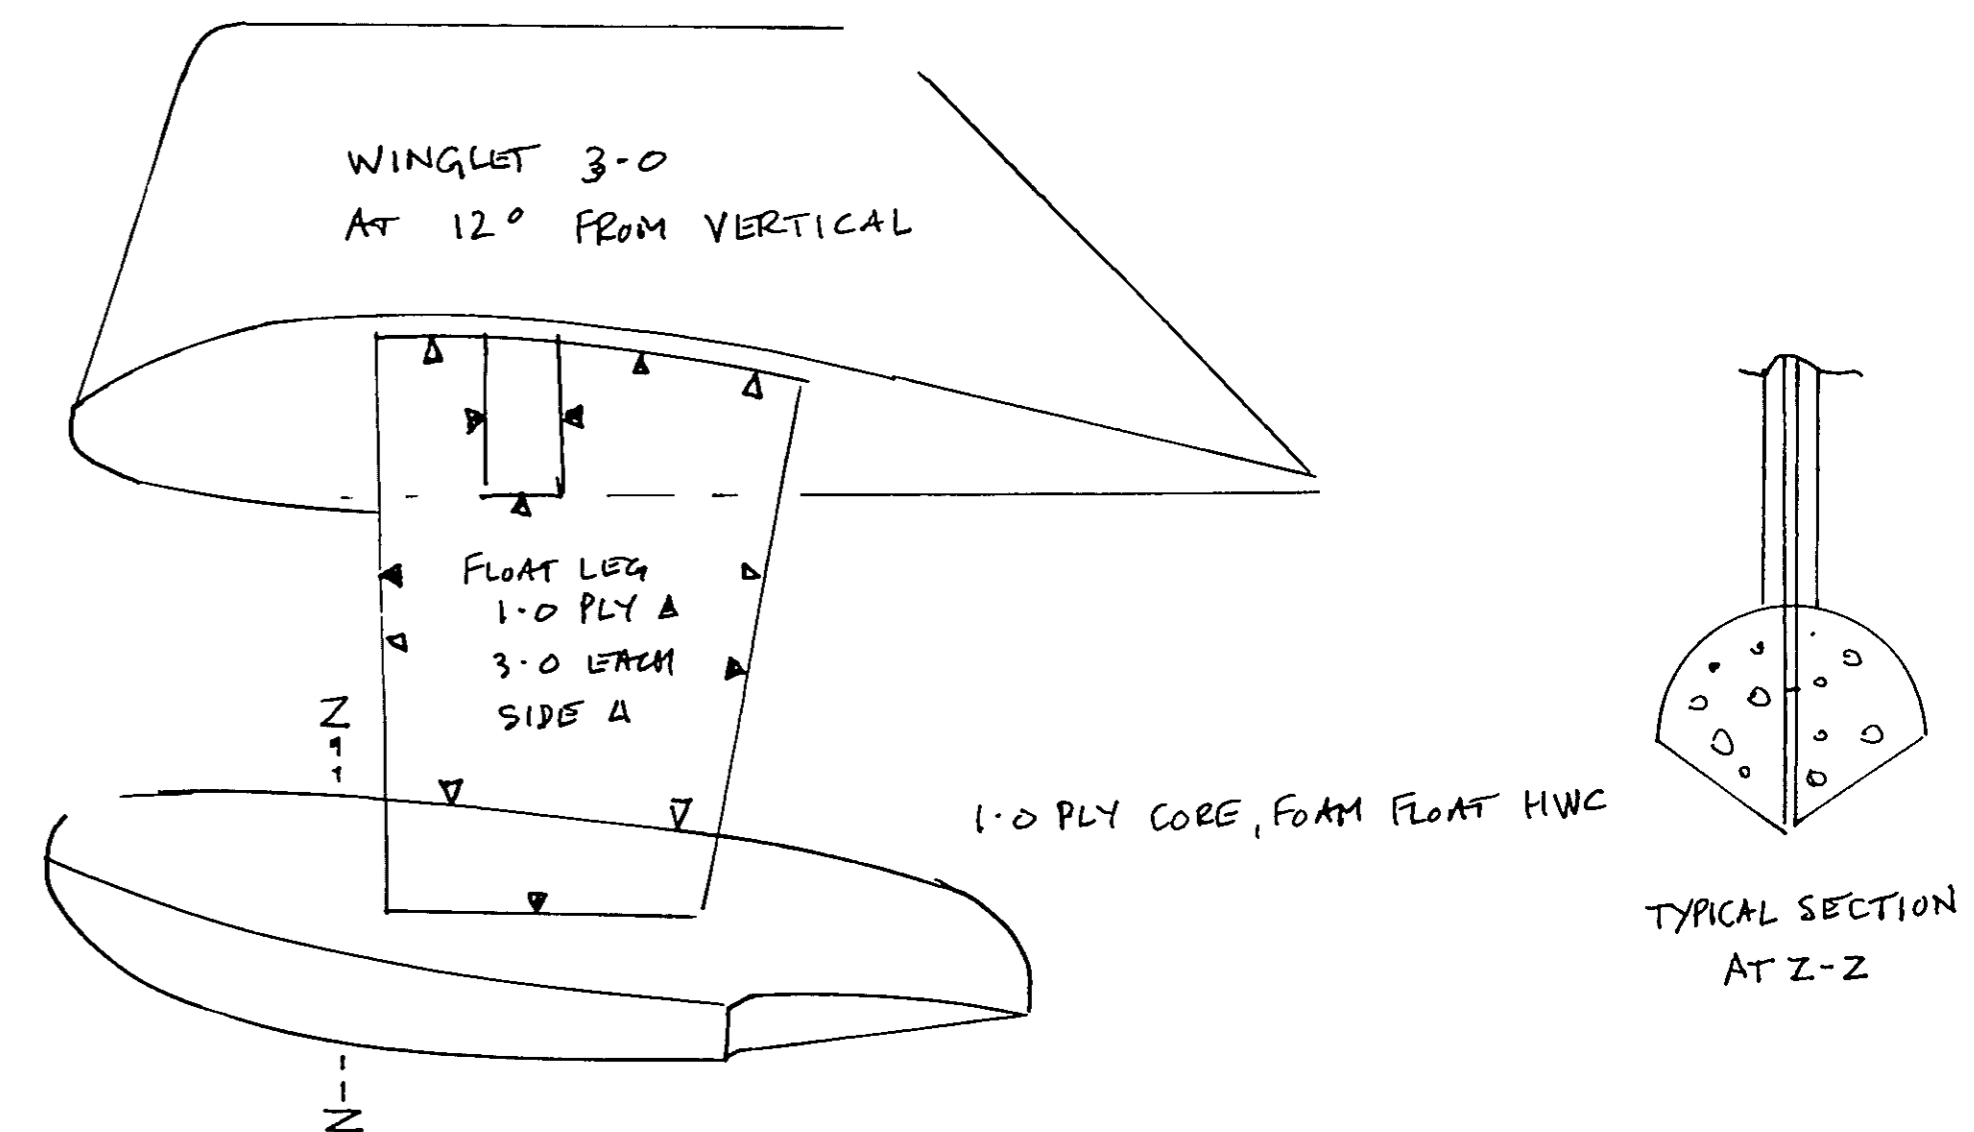 WINGLET 3-0
AT 12° FROM VERTICAL
FLOAT LEG
1·0 PLY ▲
3·0 EACH
SIDE △
Z
1·0 PLY CORE, FOAM FLOAT HWC
TYPICAL SECTION
AT Z-Z
Z